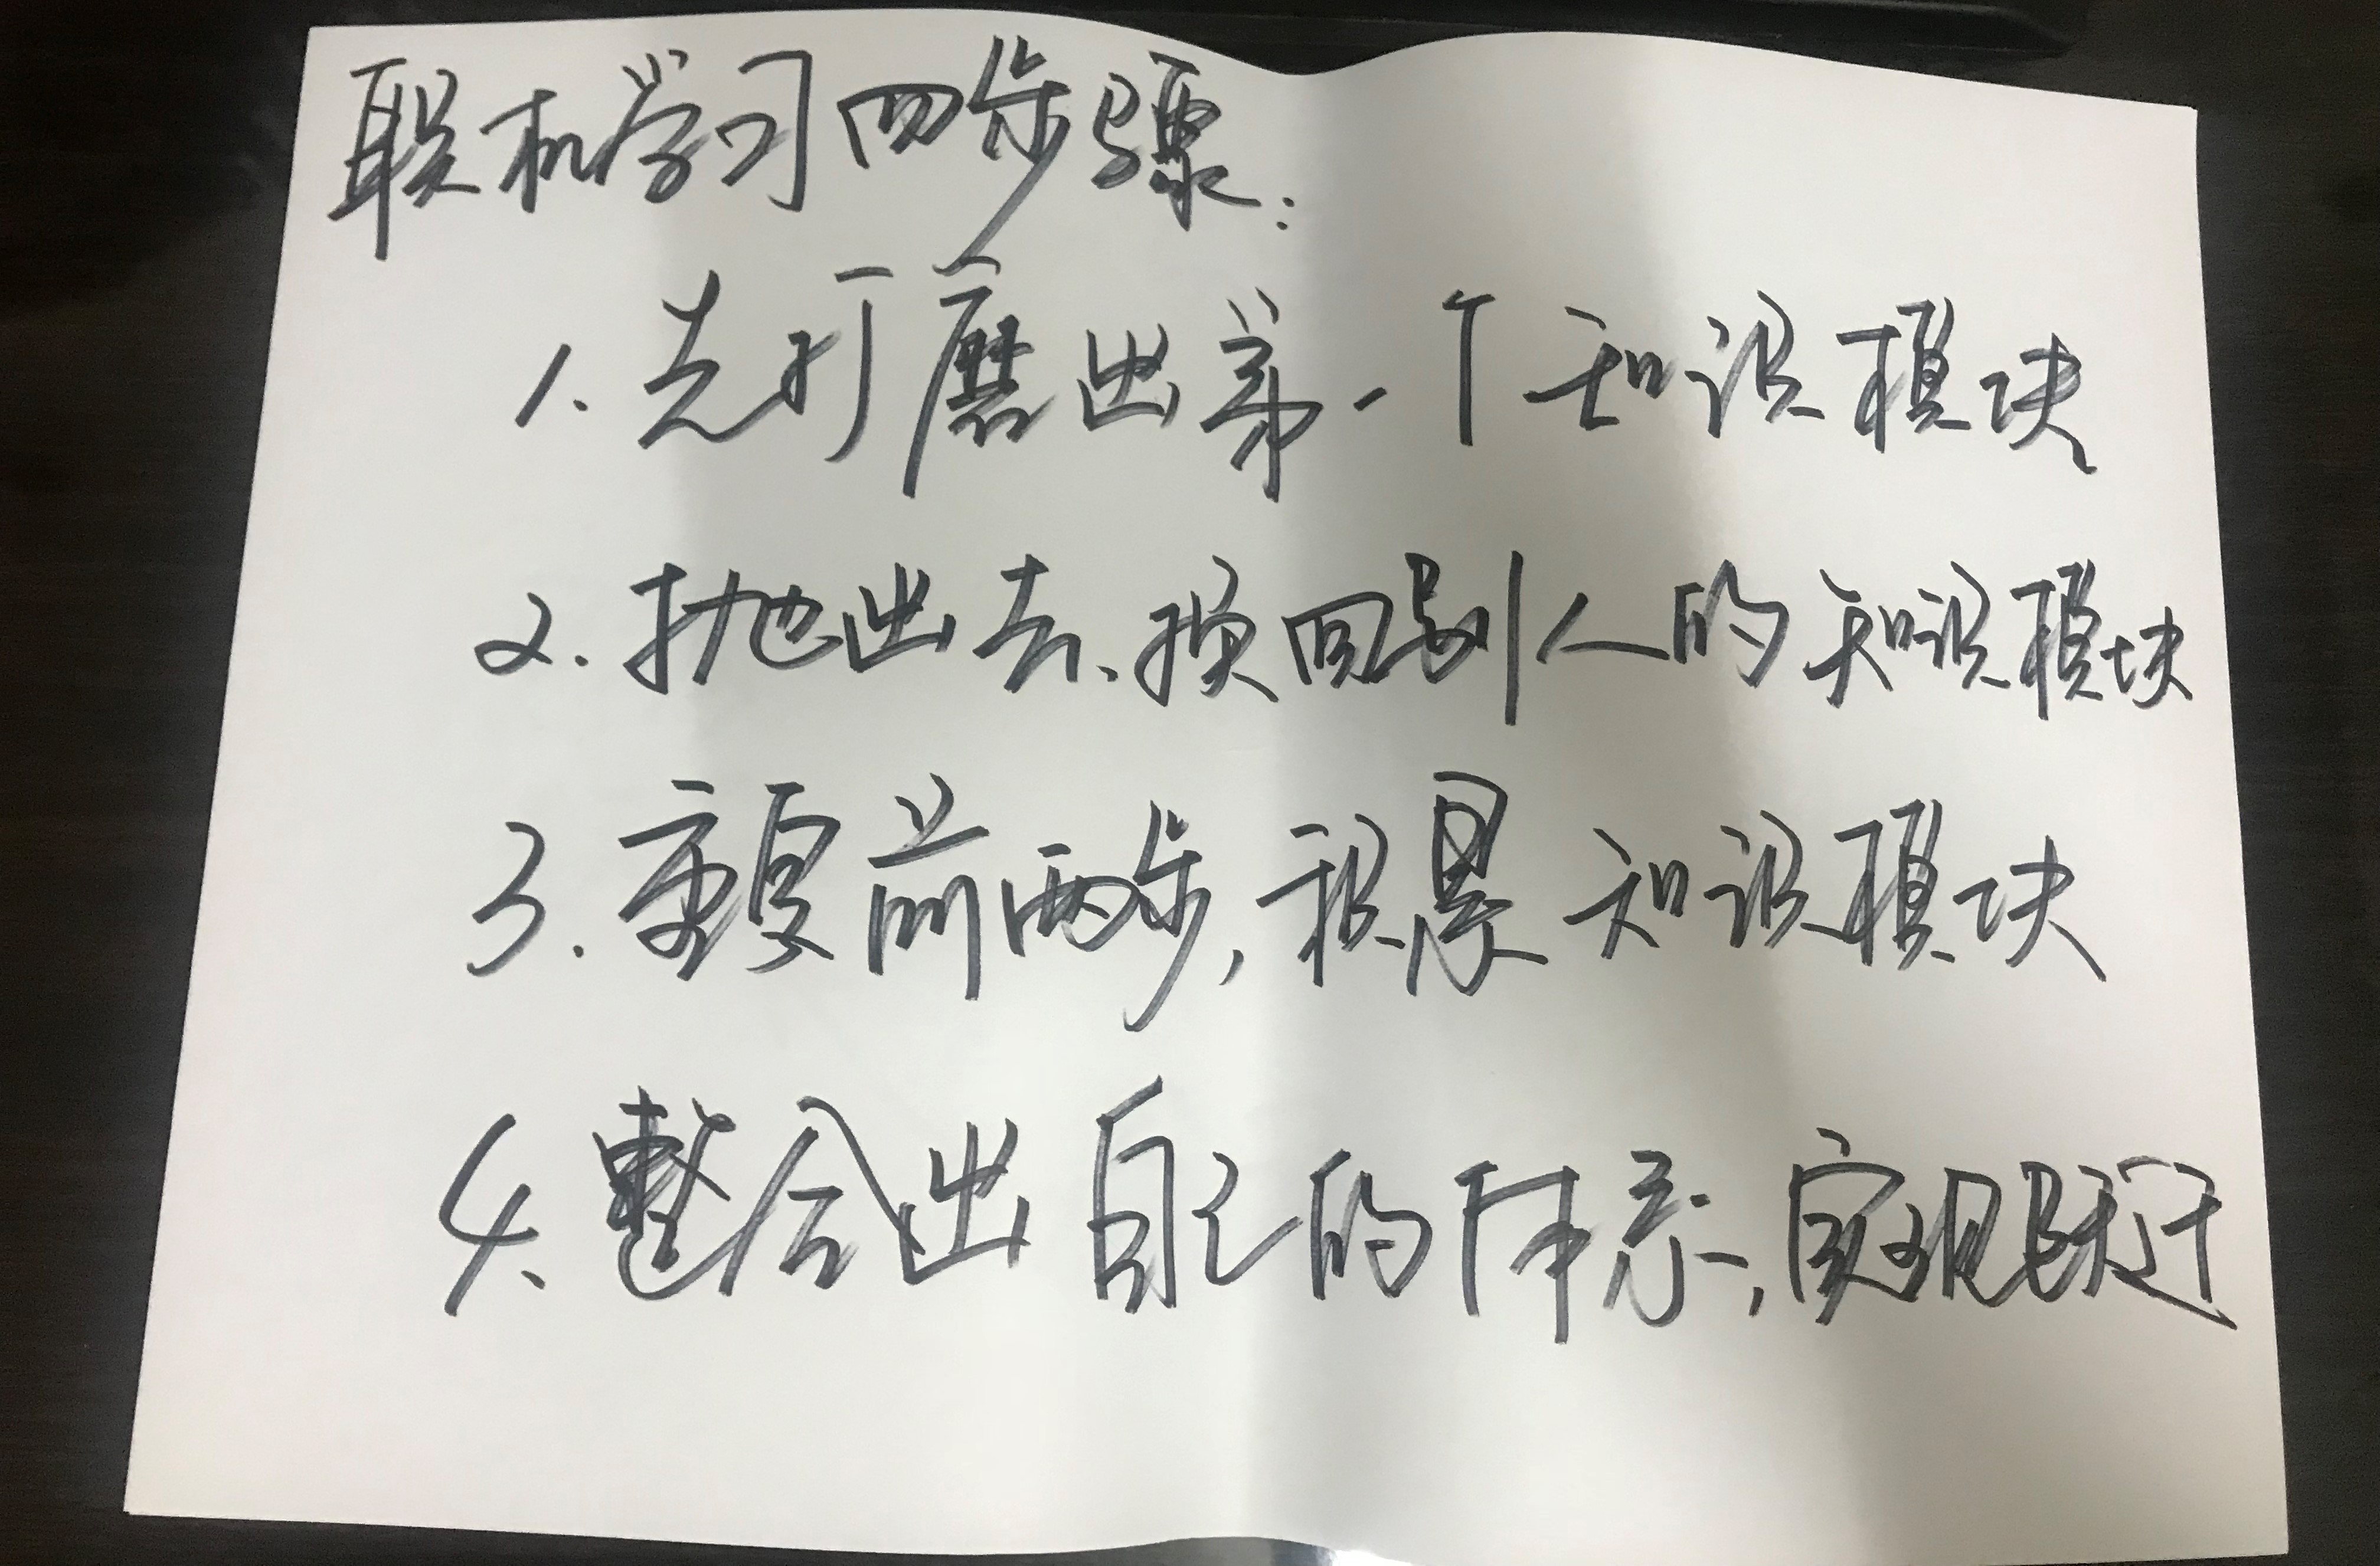 联机学习四步骤:
1. 先打磨出第一个知识模块
2. 抛出去、换回别人的知识模块
3. 重复前两步,积累知识模块
4、整合出自己的体系,实现跃迁